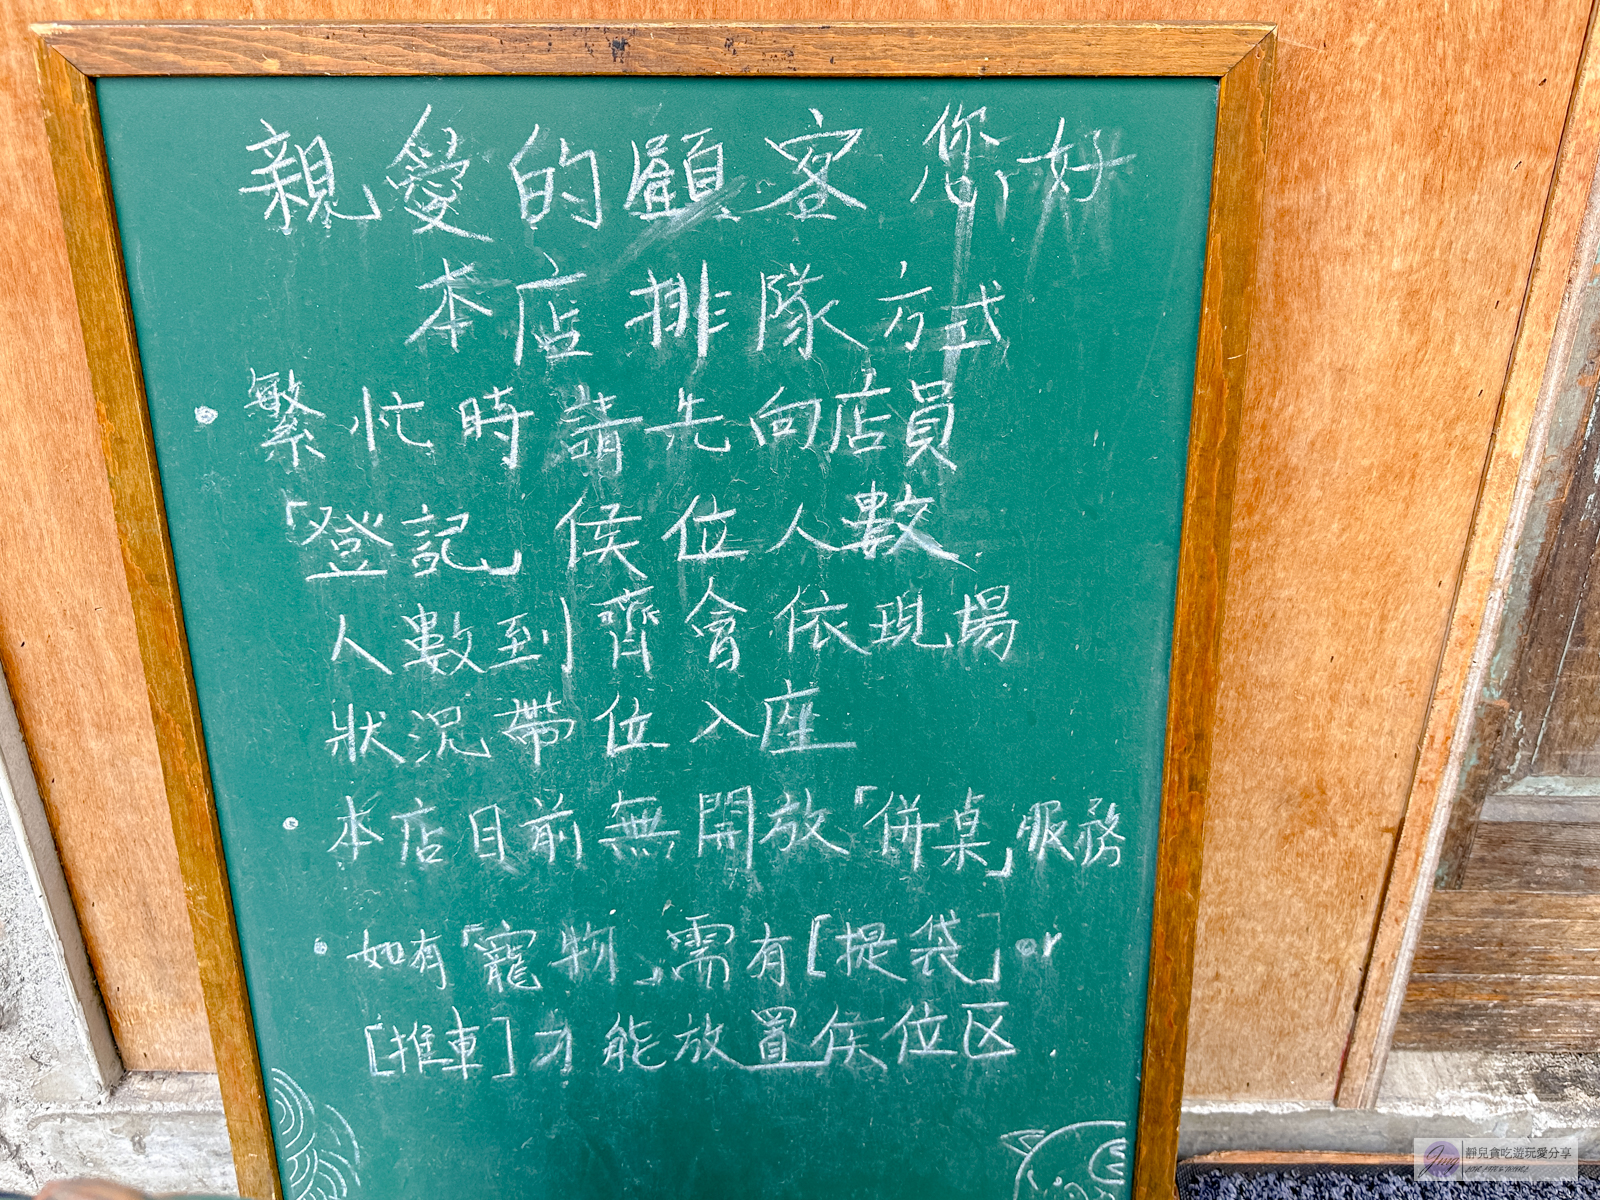 親愛的顧客您好
本店排隊方式
• 繁忙時請先向店員
「登記」侯位人數
人數到齊會依現場
狀況帶位入座
• 本店目前無開放「併桌」服務
• 如有「寵物」需有[提袋] or
[推車]才能放置侯位区.
靜兒貪吃遊玩愛分享